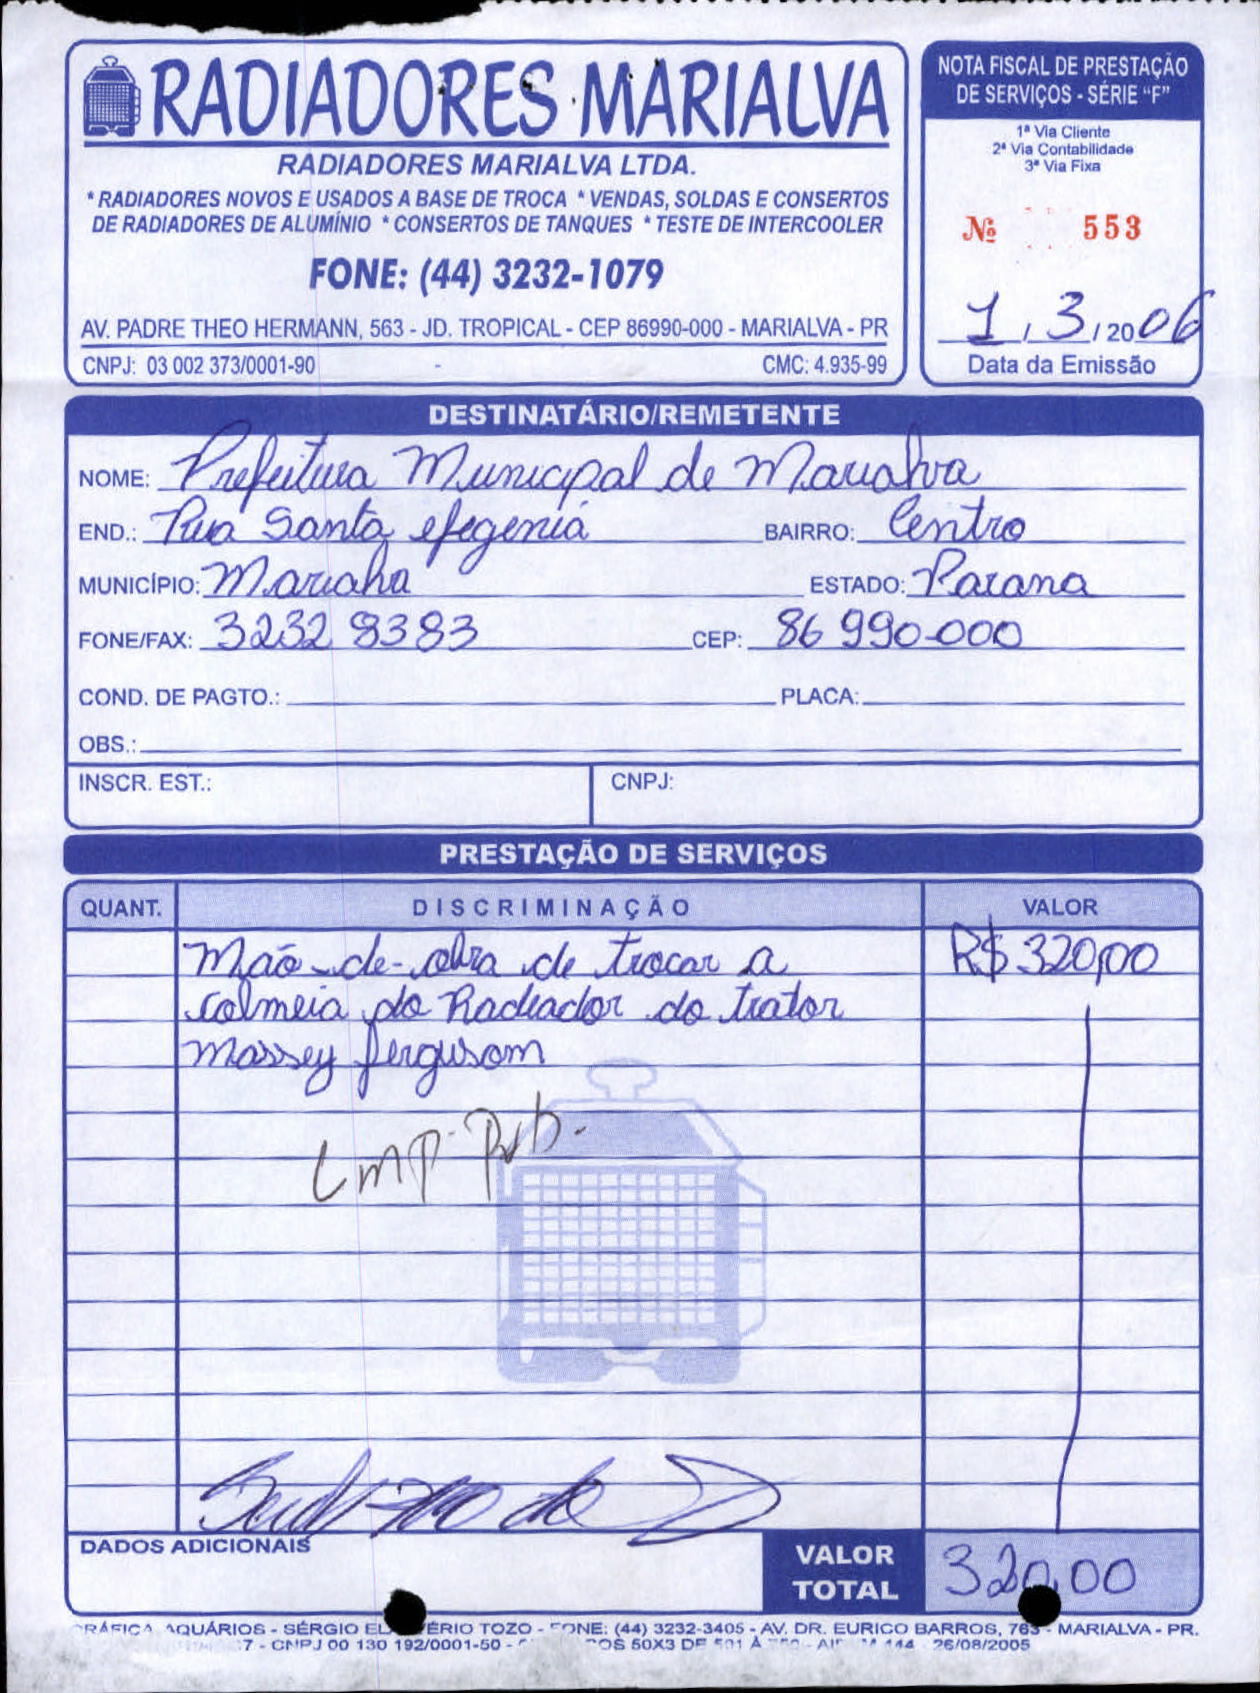 RADIADORES MARIALVA
RADIADORES MARIALVA LTDA.
* RADIADORES NOVOS E USADOS A BASE DE TROCA * VENDAS, SOLDAS E CONSERTOS
DE RADIADORES DE ALUMÍNIO * CONSERTOS DE TANQUES * TESTE DE INTERCOOLER
FONE: (44) 3232-1079
AV. PADRE THEO HERMANN, 563 - JD. TROPICAL - CEP 86990-000 - MARIALVA - PR
CNPJ: 03 002 373/0001-90 CMC: 4.935-99
NOTA FISCAL DE PRESTAÇÃO
DE SERVIÇOS - SÉRIE "F"
1ª Via Cliente
2ª Via Contabilidade
3ª Via Fixa
Nº 553
1/3/2006
Data da Emissão
DESTINATÁRIO/REMETENTE
NOME: Prefeitura Municipal de Marialva
END.: Rua Santa efegenia BAIRRO: Centro
MUNICÍPIO: Marialva ESTADO: Parana
FONE/FAX: 3232 8383 CEP: 86 990-000
COND. DE PAGTO.: PLACA:
OBS.:
INSCR. EST.: CNPJ:
PRESTAÇÃO DE SERVIÇOS
QUANT. DISCRIMINAÇÃO VALOR
Mão-de-obra de trocar a R$ 320,00
colmeia do Radiador do trator
Massey fergusom
DADOS ADICIONAIS
VALOR
TOTAL 320,00
GRÁFICA AQUÁRIOS - SÉRGIO TOZO - FONE: (44) 3232-3405 - AV. DR. EURICO BARROS, 763 - MARIALVA - PR.
7 - CNPJ 00 130 192/0001-50 - 50X3 DE 501 À 26/08/2005